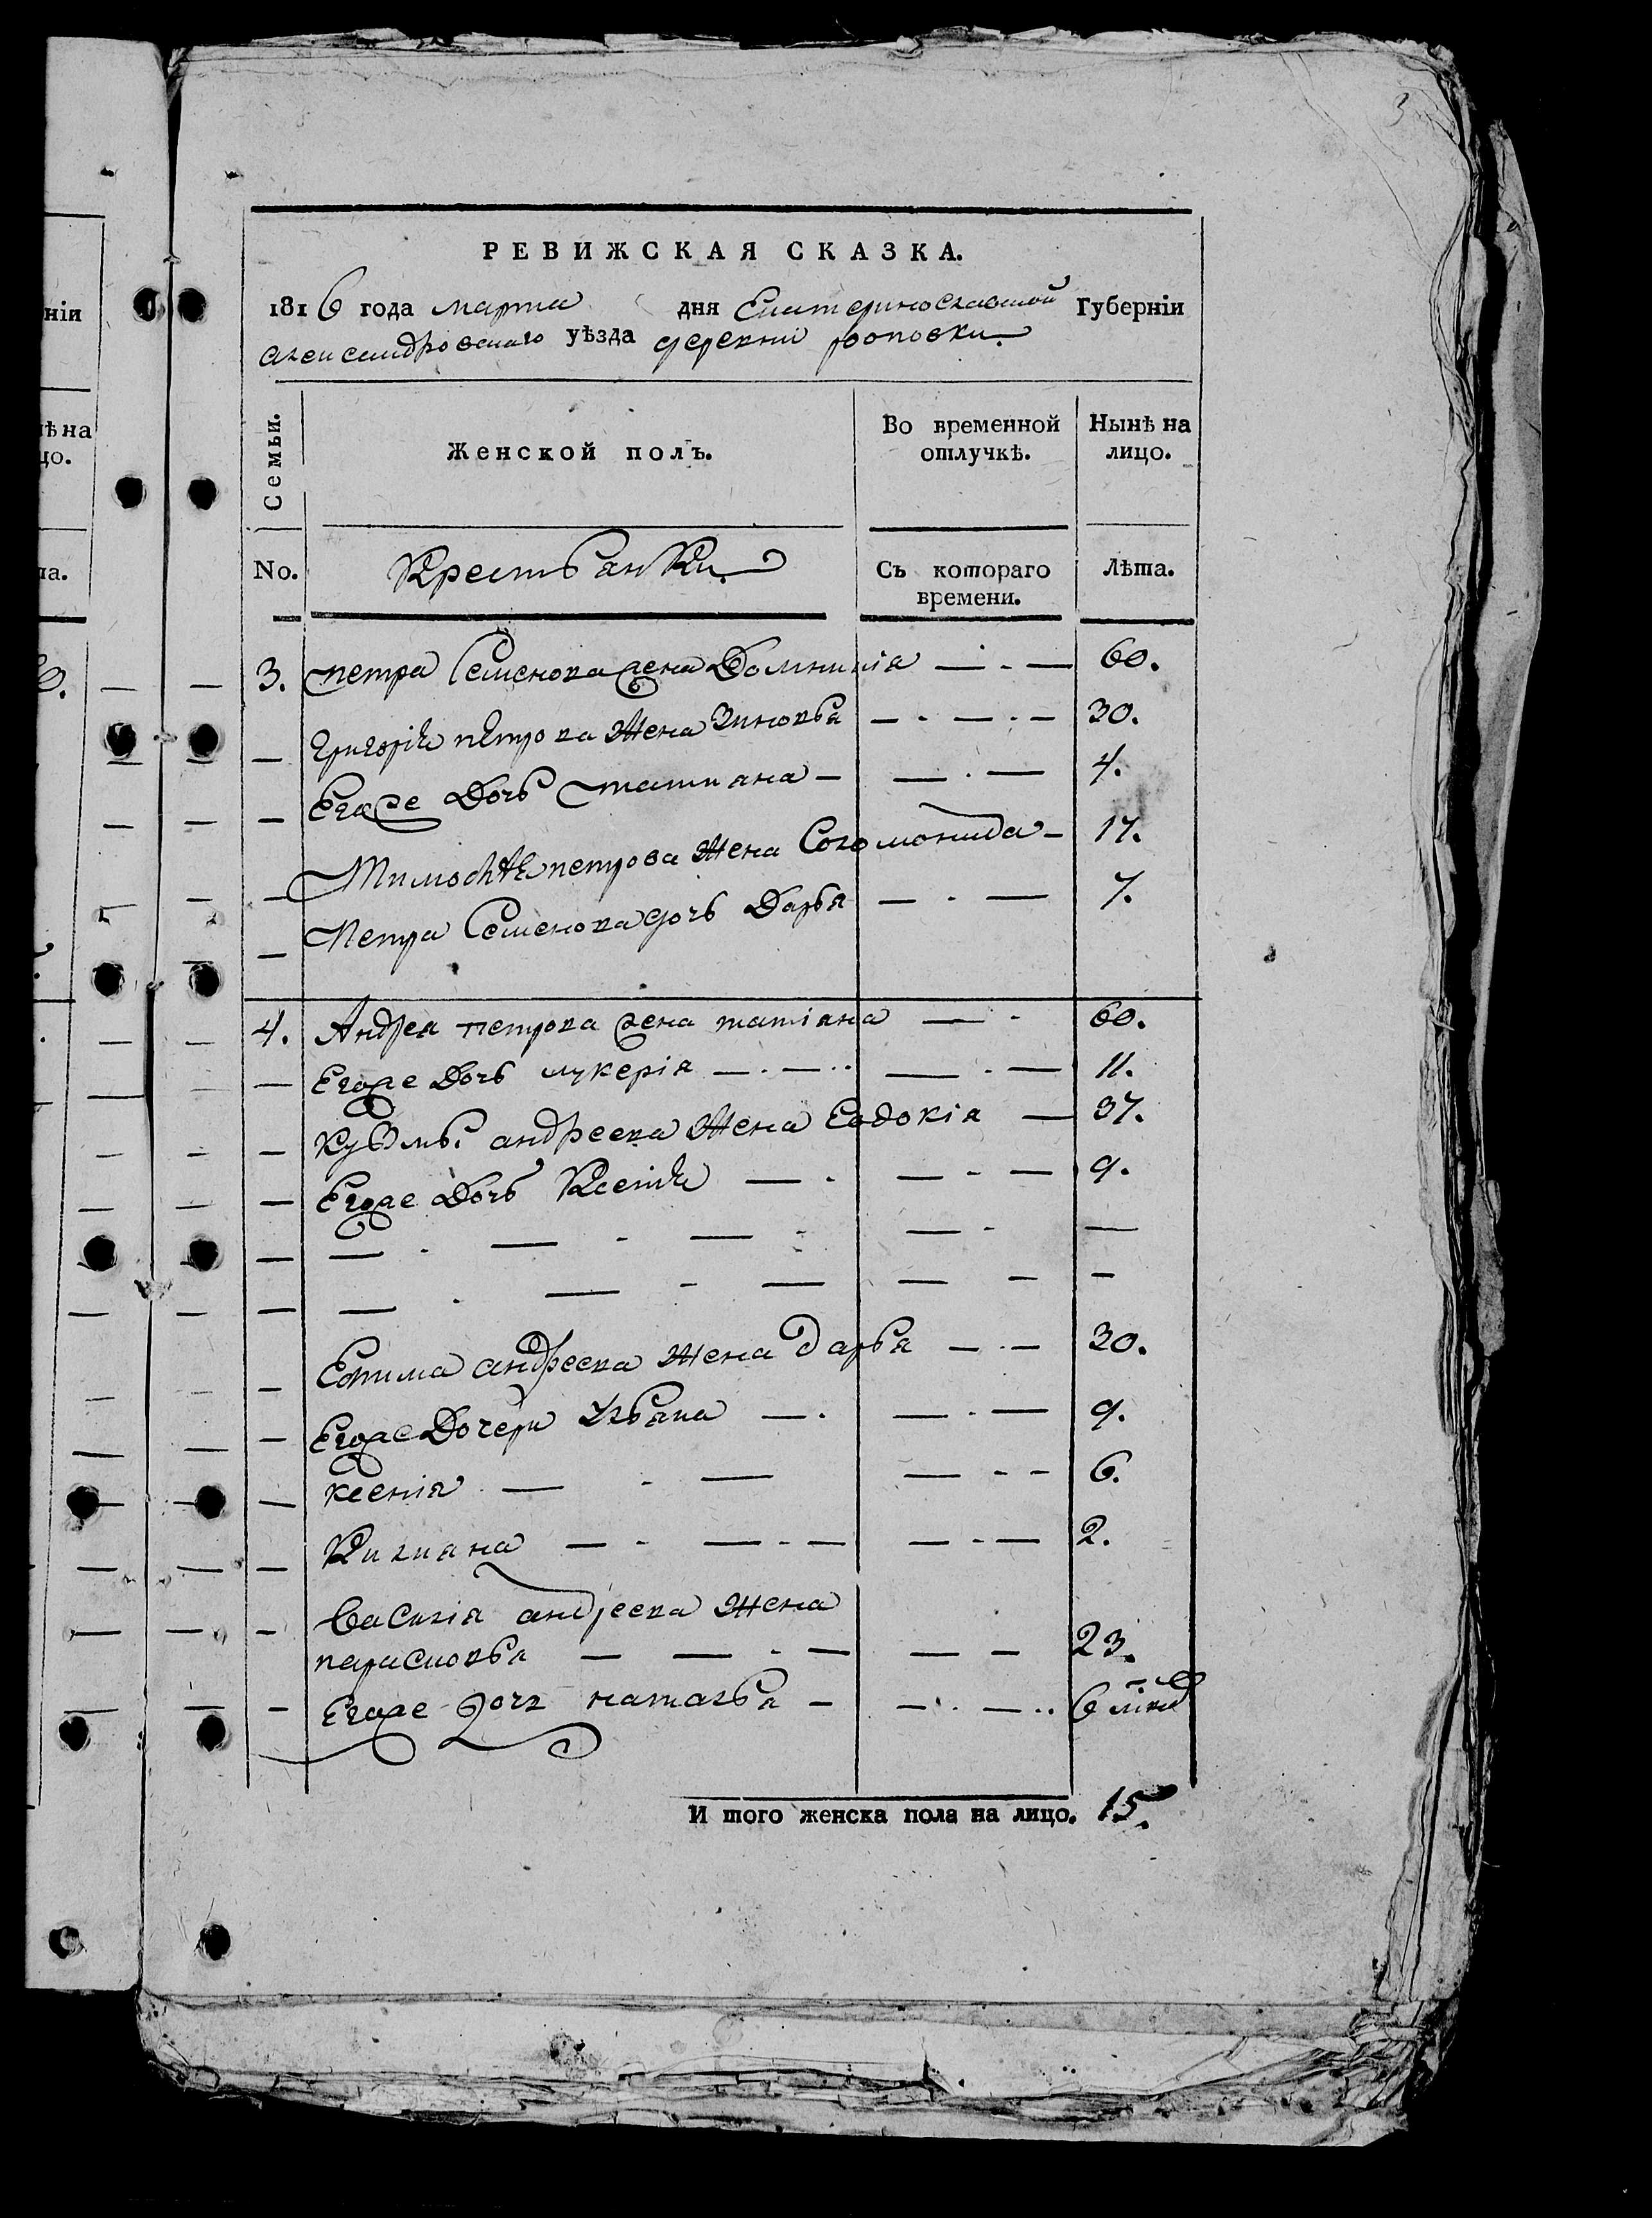 3
РЕВИЖСКАЯ СКАЗКА.
1816 года марта дня Екатеринославской Губерніи
александровскаго уѣзда деревни роповки.
Семьи. Женской полъ. Во временной отлучкѣ. Нынѣ на лицо.
No. Крестьянки Съ котораго времени. Лѣта.
3. петра Семенова жена Домникія — . — 60.
— григорія петрова жена Зиновья — . — . — 30.
— Егоже дочь татиана — — . — 4.
— Тимофѣя петрова жена Соломонида — 17.
— Петра Семенова дочь Дарья — . — 7.
4. Андрея петрова жена татіана — . 60.
— Егоже дочь лукерія — . — .. — . — 11.
— Кузьмы андреева жена Евдокія — 37.
— Егоже дочь Ксенія — . — . — 9.
— — . — . — . — . —
— — . — . — — . —
— Ефима андреева жена дарья — . — 30.
— Егоже дочери Ульяна — . — . — 9.
— ксенія — . — — . . 6.
— Килиана — . — . — — . — 2.
— Василія андреева жена
парасковья — — . — — — 23.
— Егоже дочь наталья — — . — .. 6
И того женска пола на лицо. 15.
ніи
ѣ на
цо.
та.